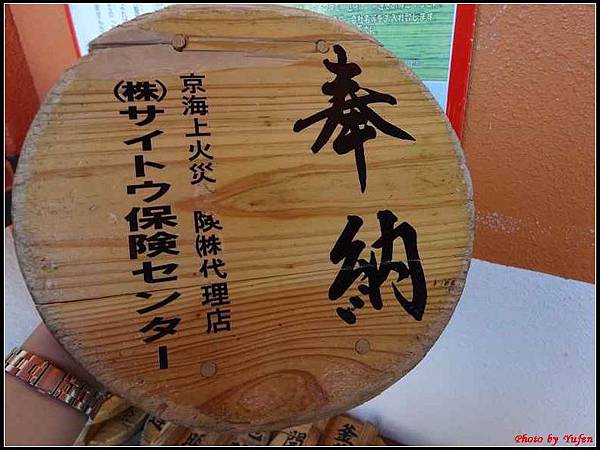 奉納
京海上火災 険㈱代理店
㈱サイトウ保険センター
Photo by Yufen